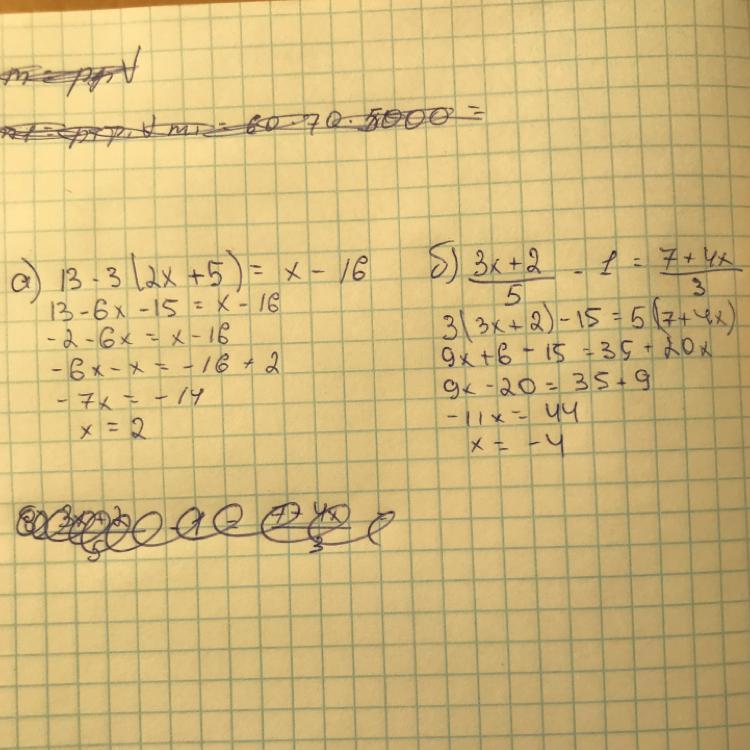 60·70·5000 =
а) 13 - 3(2x + 5) = x - 16
13 - 6x - 15 = x - 16
-2 - 6x = x - 16
-6x - x = -16 + 2
-7x = -14
x = 2
б) \frac{3x+2}{5} - 1 = \frac{7+4x}{3}
3(3x+2) - 15 = 5(7+4x)
9x + 6 - 15 = 35 + 20x
9x - 20 = 35 + 9
-11x = 44
x = -4